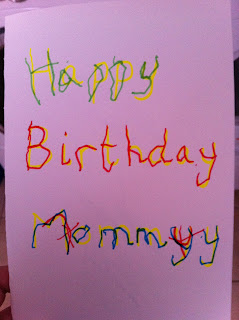 Happy
Birthday
Mommyy